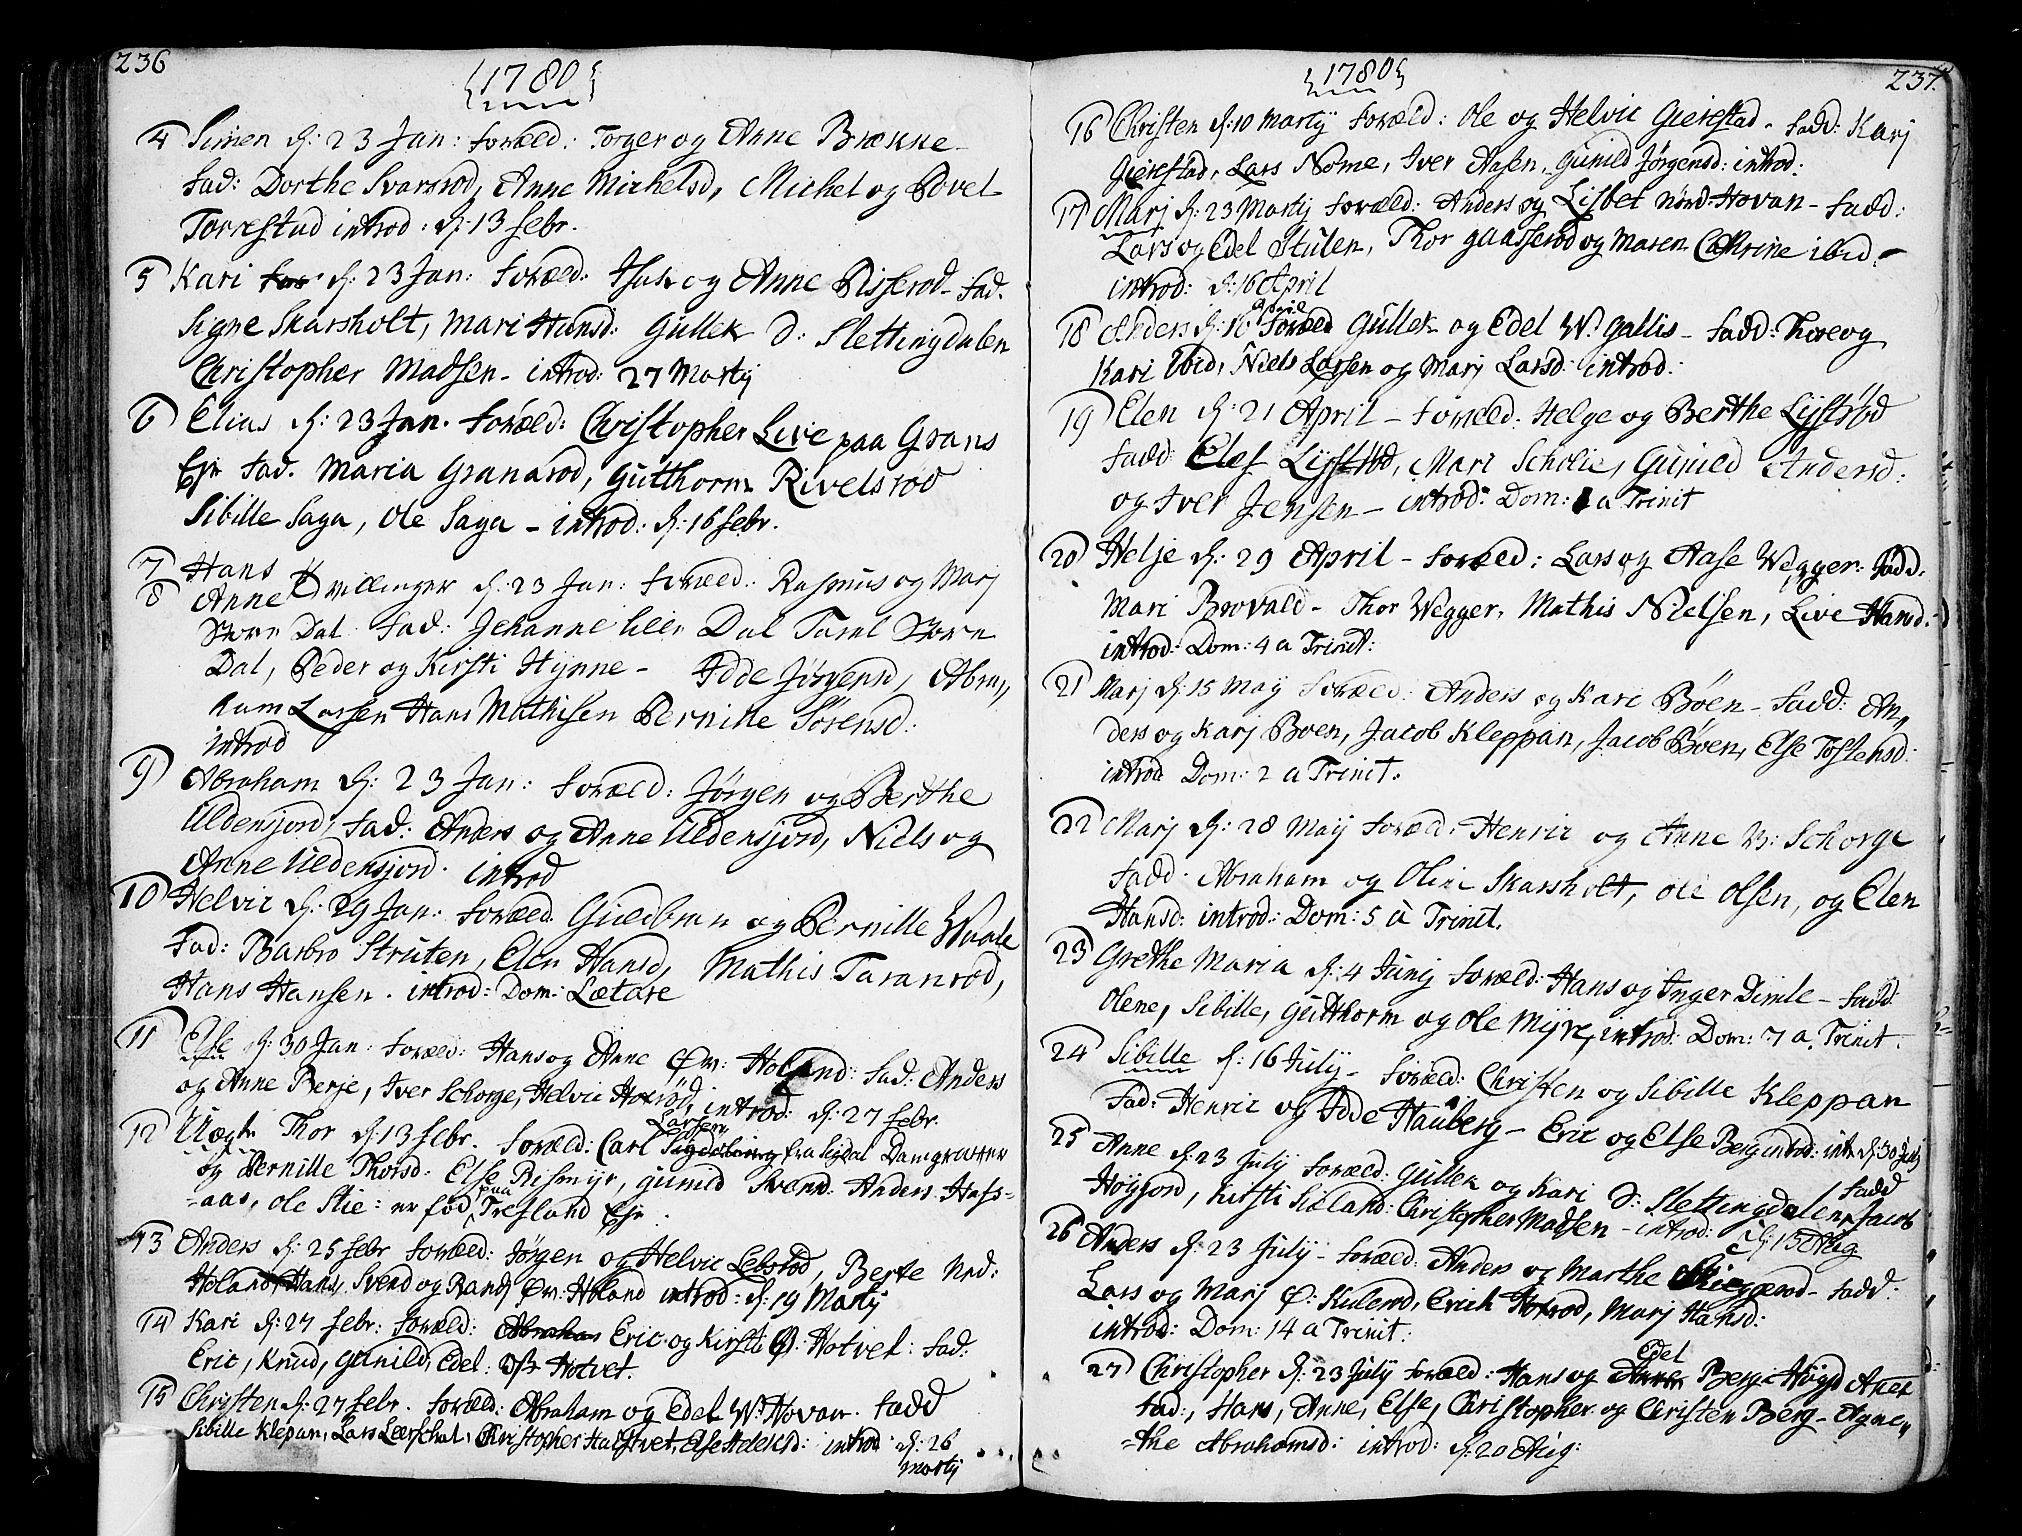 236
{1780}
4 Simen d: 23 Jan: foræld: Torger og Anne Brekke
fad: Dorthe Svarsrod, Anne Michelsd, Michel og Povel
Torrestad introd: d: 13 febr.
5 Kari d: 23 Jan: foræld: Isak og Anne Risserod - fad.
Signe Skarsholt, Mari Hansd: Gullek O: Slettingdalen
Christopher Madsen - introd: 27 Martij
6 Elias d: 23 Jan. foræld: Christopher Live paa Grans
Ejr fad. Maria Granasrod, Gutthorm Rivelsrod
Sibille Saga, Ole Saga - introd: d: 16 febr.
7 Hans
8 Anne Dvillinger d: 23 Jan: foræld: Rasmus og Marj
Store Dal fad: Johanne lille Dal Taral Store
Dal, Peder og Kirsti Hynne - Idde Jørgensd, Abra„
ham Larsen Hans Mathisen Pernille Sørensd:
introd
9 Abraham d: 23 Jan: foræld: Jørgen og Berthe
Uldensjord, fad: Anders og Anne Uldensjord, Niels og
Anne Uldensjord. introd
10 Helvic d: 29 Jan: foræld Guldbran og Pernille Waale
fad: Barbro Struten, Elen Hansd, Mathis Taranrod,
Hans Hansen. introd: Dom: Lætare
11 Else d: 30 Jan: foræld: Hans og Anne Øv: Holand: fad: Anders
og Anne Berje, Iver Schorge, Helvic Hotrød, introd: d: 27 febr.
12 Uægte Thor d: 13 febr. foræld: Carl Larsen Sigdøling fra Sigdal Damgraver
og Pernille Thorsd: Else Rismyr, Gunild Svend: Anders Hass-
-aas, Ole Stie: er fød paa Tresland Ejr.
13 Anders d: 25 febr foræld: Jørgen og Helvic Lebsrod, Berte Ned:
Holand, Hans, Svend og Randj Øv: Holand introd: d: 19 Martij
14 Kari d: 27 febr: foræld: Abraham Eric og Kirsti Ø: Hotvet: fad:
Eric, Knud, Gunild, Edel: Øfr Hotvet.
15 Christen d: 27 febr. foræld: Abraham og Edel W: Hovan. fadd
Sibille Klepan, Lars Leerschal, Christopher Halstvet, Else Helliksd: introd d: 26
Martij
237.
{1780}
16 Christen d: 10 Martij foræld: Ole og Helvic Gierestad. fadd: Karj
Gierestad, Lars Nome, Iver Aasen, Gunild Jørgensd: introd:
17 Marj d: 23 Martij foræld: Anders og Lisbet Nord-Hovan - fadd:
Lars og Edel Stulen, Thor Gaasserod og Maren Cathrine ibid. -
introd: d: 16 April
18 Anders d: 10 April foræld Gullek og Edel W. Gallis - fadd: Thore og
Kari ibid, Niels Larsen og Marj Larsd: introd:
19 Elen d: 21 April - foræld: Helge og Berthe Lysrød
fadd: Elef Lysrød, Mari Scholie, Gunild Andersd:
og Iver Jensen - introd: Dom: 1 a Trinit
20 Helje d: 29 April - foræld: Lars og Aase Wegger: fadd.
Mari Brovald - Thor Wegger, Mathis Nielsen, Live Hansd:
introd: Dom: 4 a Trinit:
21 Marj d: 15 Maij foræld: Anders og Kari Bøen - fadd: An„
ders og Karj Boen, Jacob Kleppan, Jacob Bøen, Else Tostensd:
introd Dom: 2 a Trinit.
22 Marj d: 28 Maij foræld: Henric og Anne N: Schorge
fadd. Abraham og Oline Skarsholt, Ole Olsen, og Elen
Hansd: introd: Dom: 5 a Trinit.
23 Grethe Maria d: 4 Junij foræld: Hans og Inger Dimle - fadd:
Olene, Sibille, Gutthorm og Ole Myre, introd: Dom: 7 a. Trinit.
24 Sibille d: 16 July - foræld: Christen og Sibille Kleppan
fad: Henric og Idde Hauberg - Eric og Else Berg introd: d: 30 July
25 Anne d: 23 July foræld: Gullek og Kari O: Slettingdalen, fadd Jacob
Høyjord, Kirsti Siøland: Christopher Madsen - introd: d: 15 Aug
26 Anders d: 23 July - foræld: Anders og Marthe Skieggerod - fadd:
Lars og Marj Ø: Kulerod, Erich Hotrod, Marj Hansd:
introd: Dom: 14 a Trinit:
27 Christopher d: 23 July foræld: Hans og Anne Edel Berg - Høyjd Anex
fad:, Hans, Anne, Else, Christopher og Christen Berg - Agne„
-the Abrahamsd: introd: d: 20 Aug: